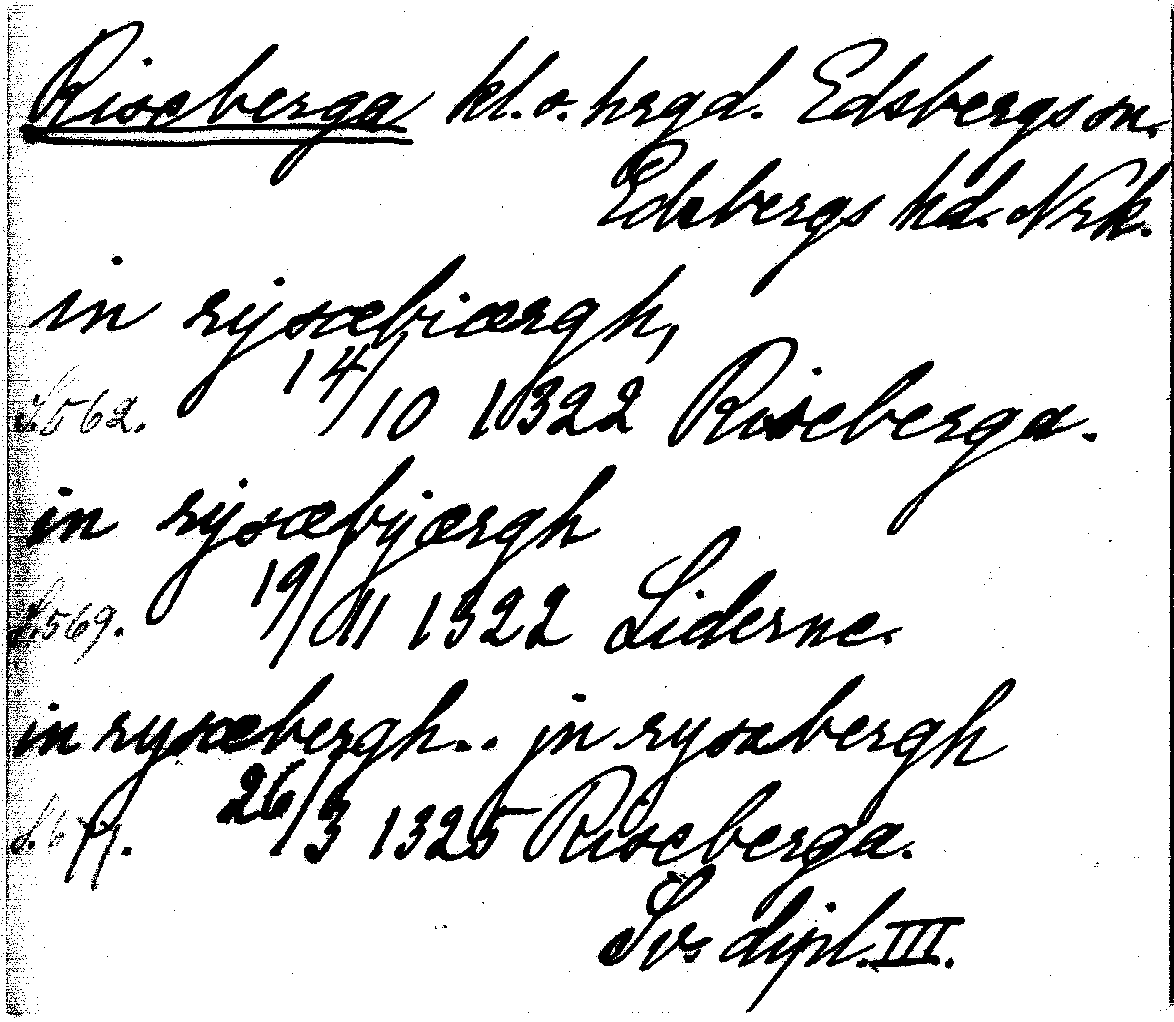 Riseberga kl. o. hrgd. Edsbergs sn.
Edsbergs hd. Nrk.
in rysæbiærgh,
S. 562. 14/10 1322 Riseberga.
in rysæbyærgh
S. 569. 19/11 1322 Liderne.
in rysæbergh.. jn rysæbergh
26/3 1325 Riseberga.
Sv. dipl. III.